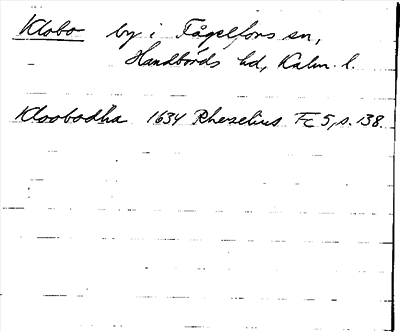 Klobo by i Fågelfors sn,
Handbörds hd, Kalm. l.
Kloobodha 1634 Rhezelius Fc 5, s. 138.